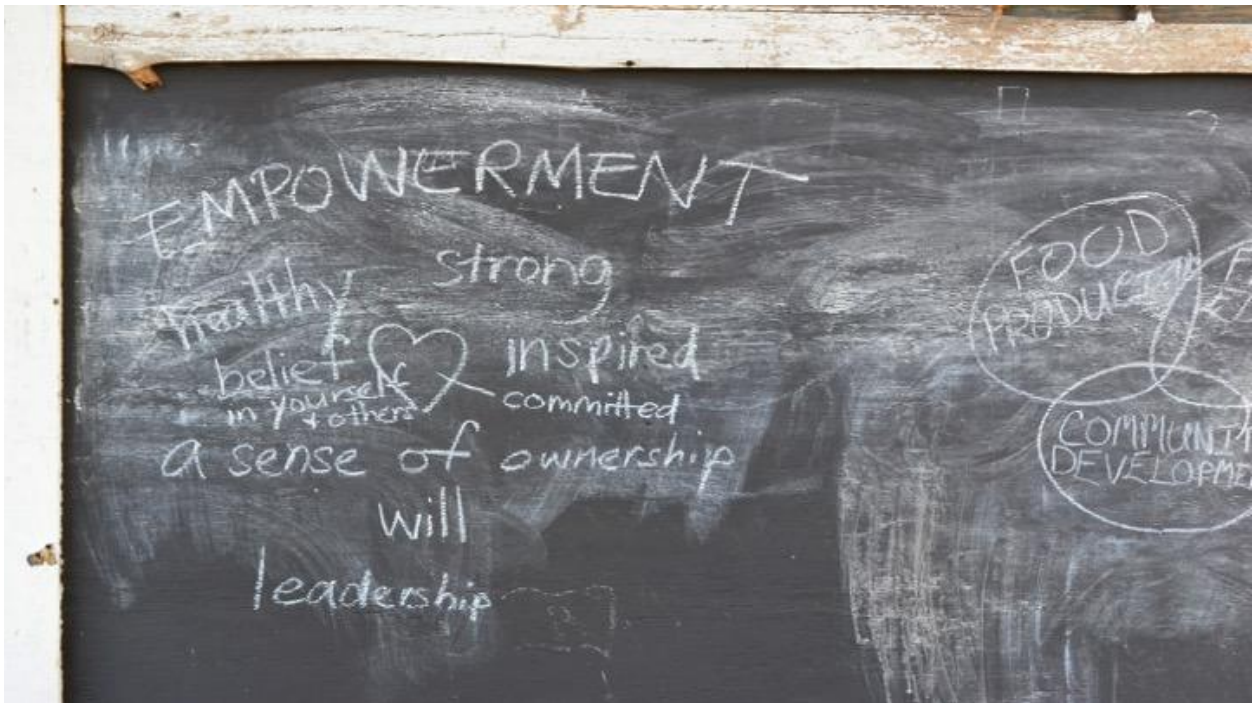 EMPOWERMENT
strong
healthy
inspired
belief
in yourself
& others
committed
a sense of ownership
will
leadership
FOOD
PRODUCTION
COMMUNIT
DEVELOPMEN